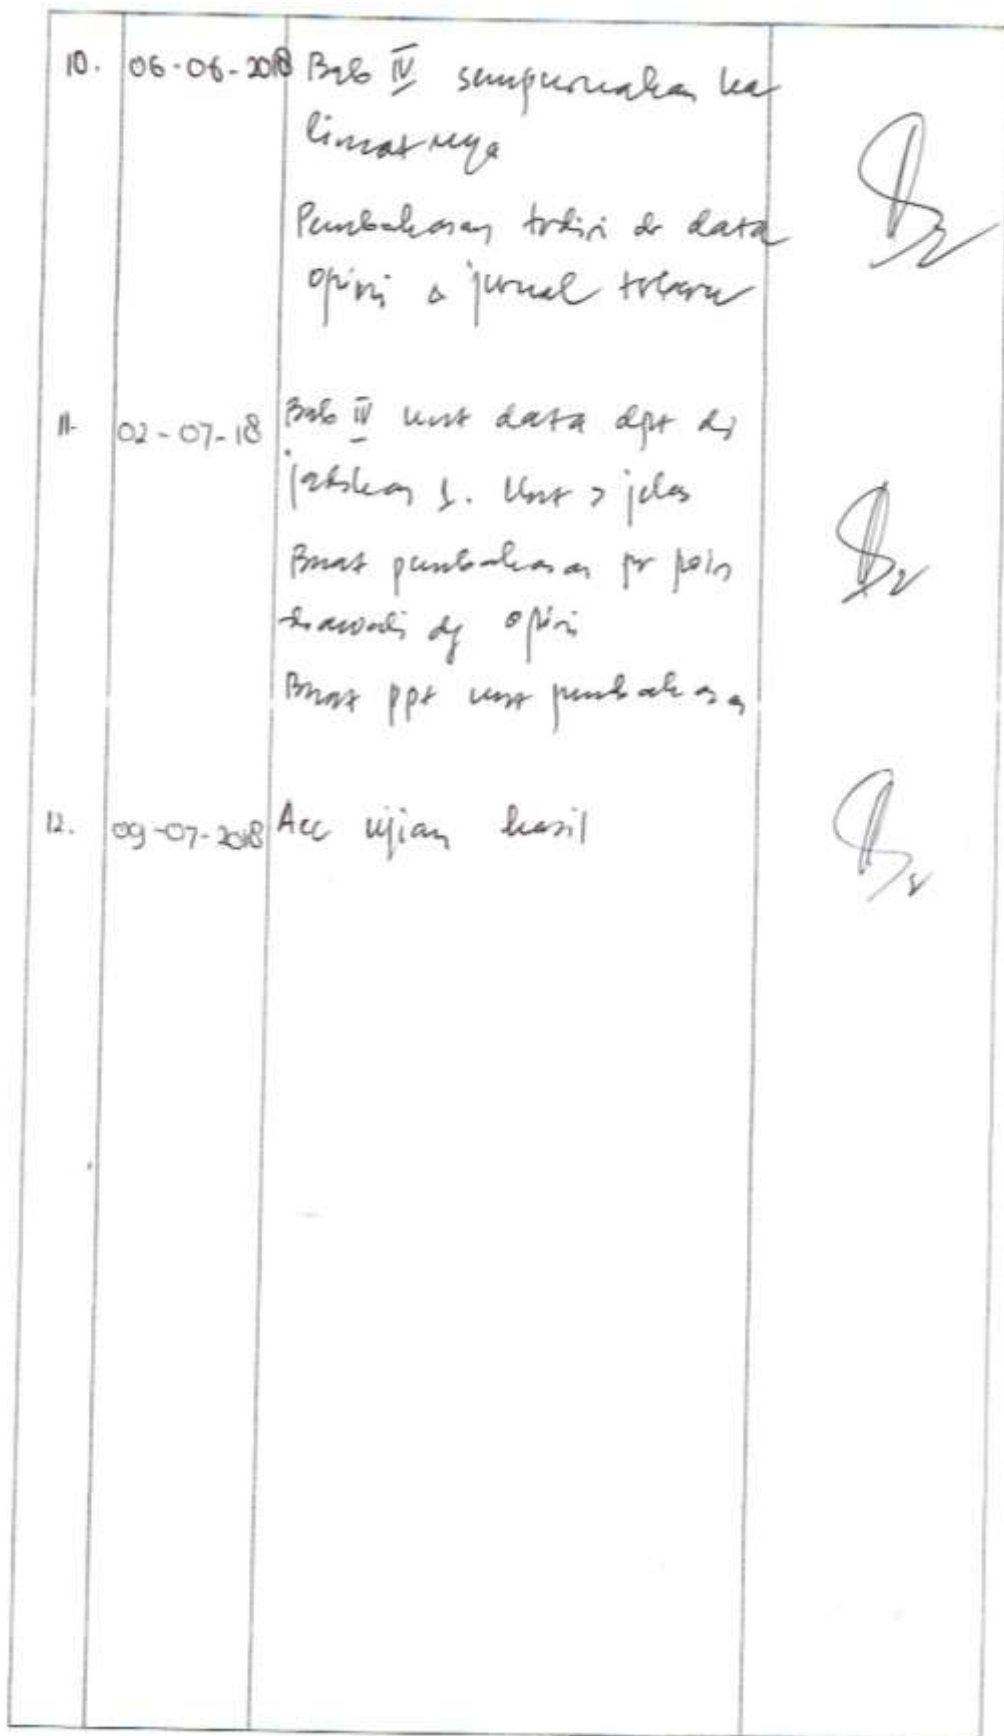 10. 06-06-2018 Bab IV sempurnakan ka
limatnya
Pembahasan terdiri dr data
opini & jurnal terbaru
11. 02-07-18 Bab IV unt data dpt di
jelaskan unt > jelas
Buat pembahasan per poin
diawali dg opini
Buat ppt unt pembahasan
12. 09-07-2018 Acc ujian hasil